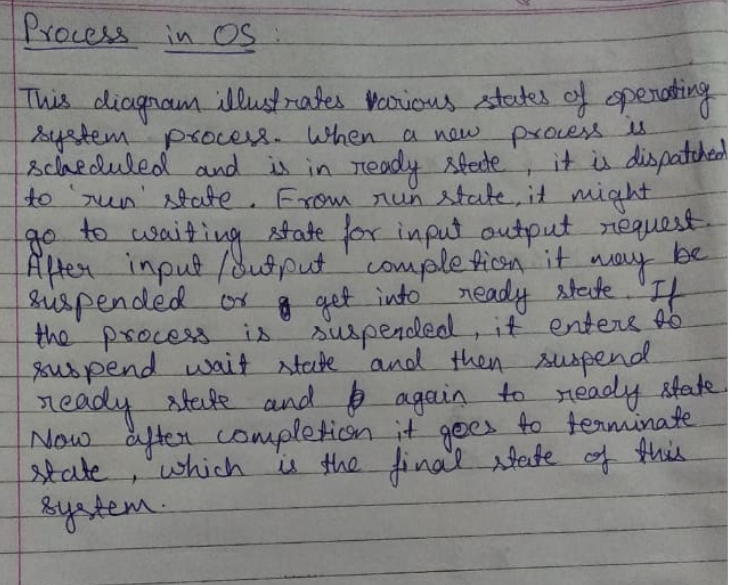 Process in OS :
This diagram illustrates various states of operating
system process. When a new process is
scheduled and is in ready state, it is dispatched
to 'run' state. From run state, it might
go to waiting state for input output request.
After input/output completion it may be
suspended or get into ready state. If
the process is suspended, it enters to
suspend wait state and then suspend
ready state and again to ready state.
Now after completion it goes to terminate
state, which is the final state of this
system.